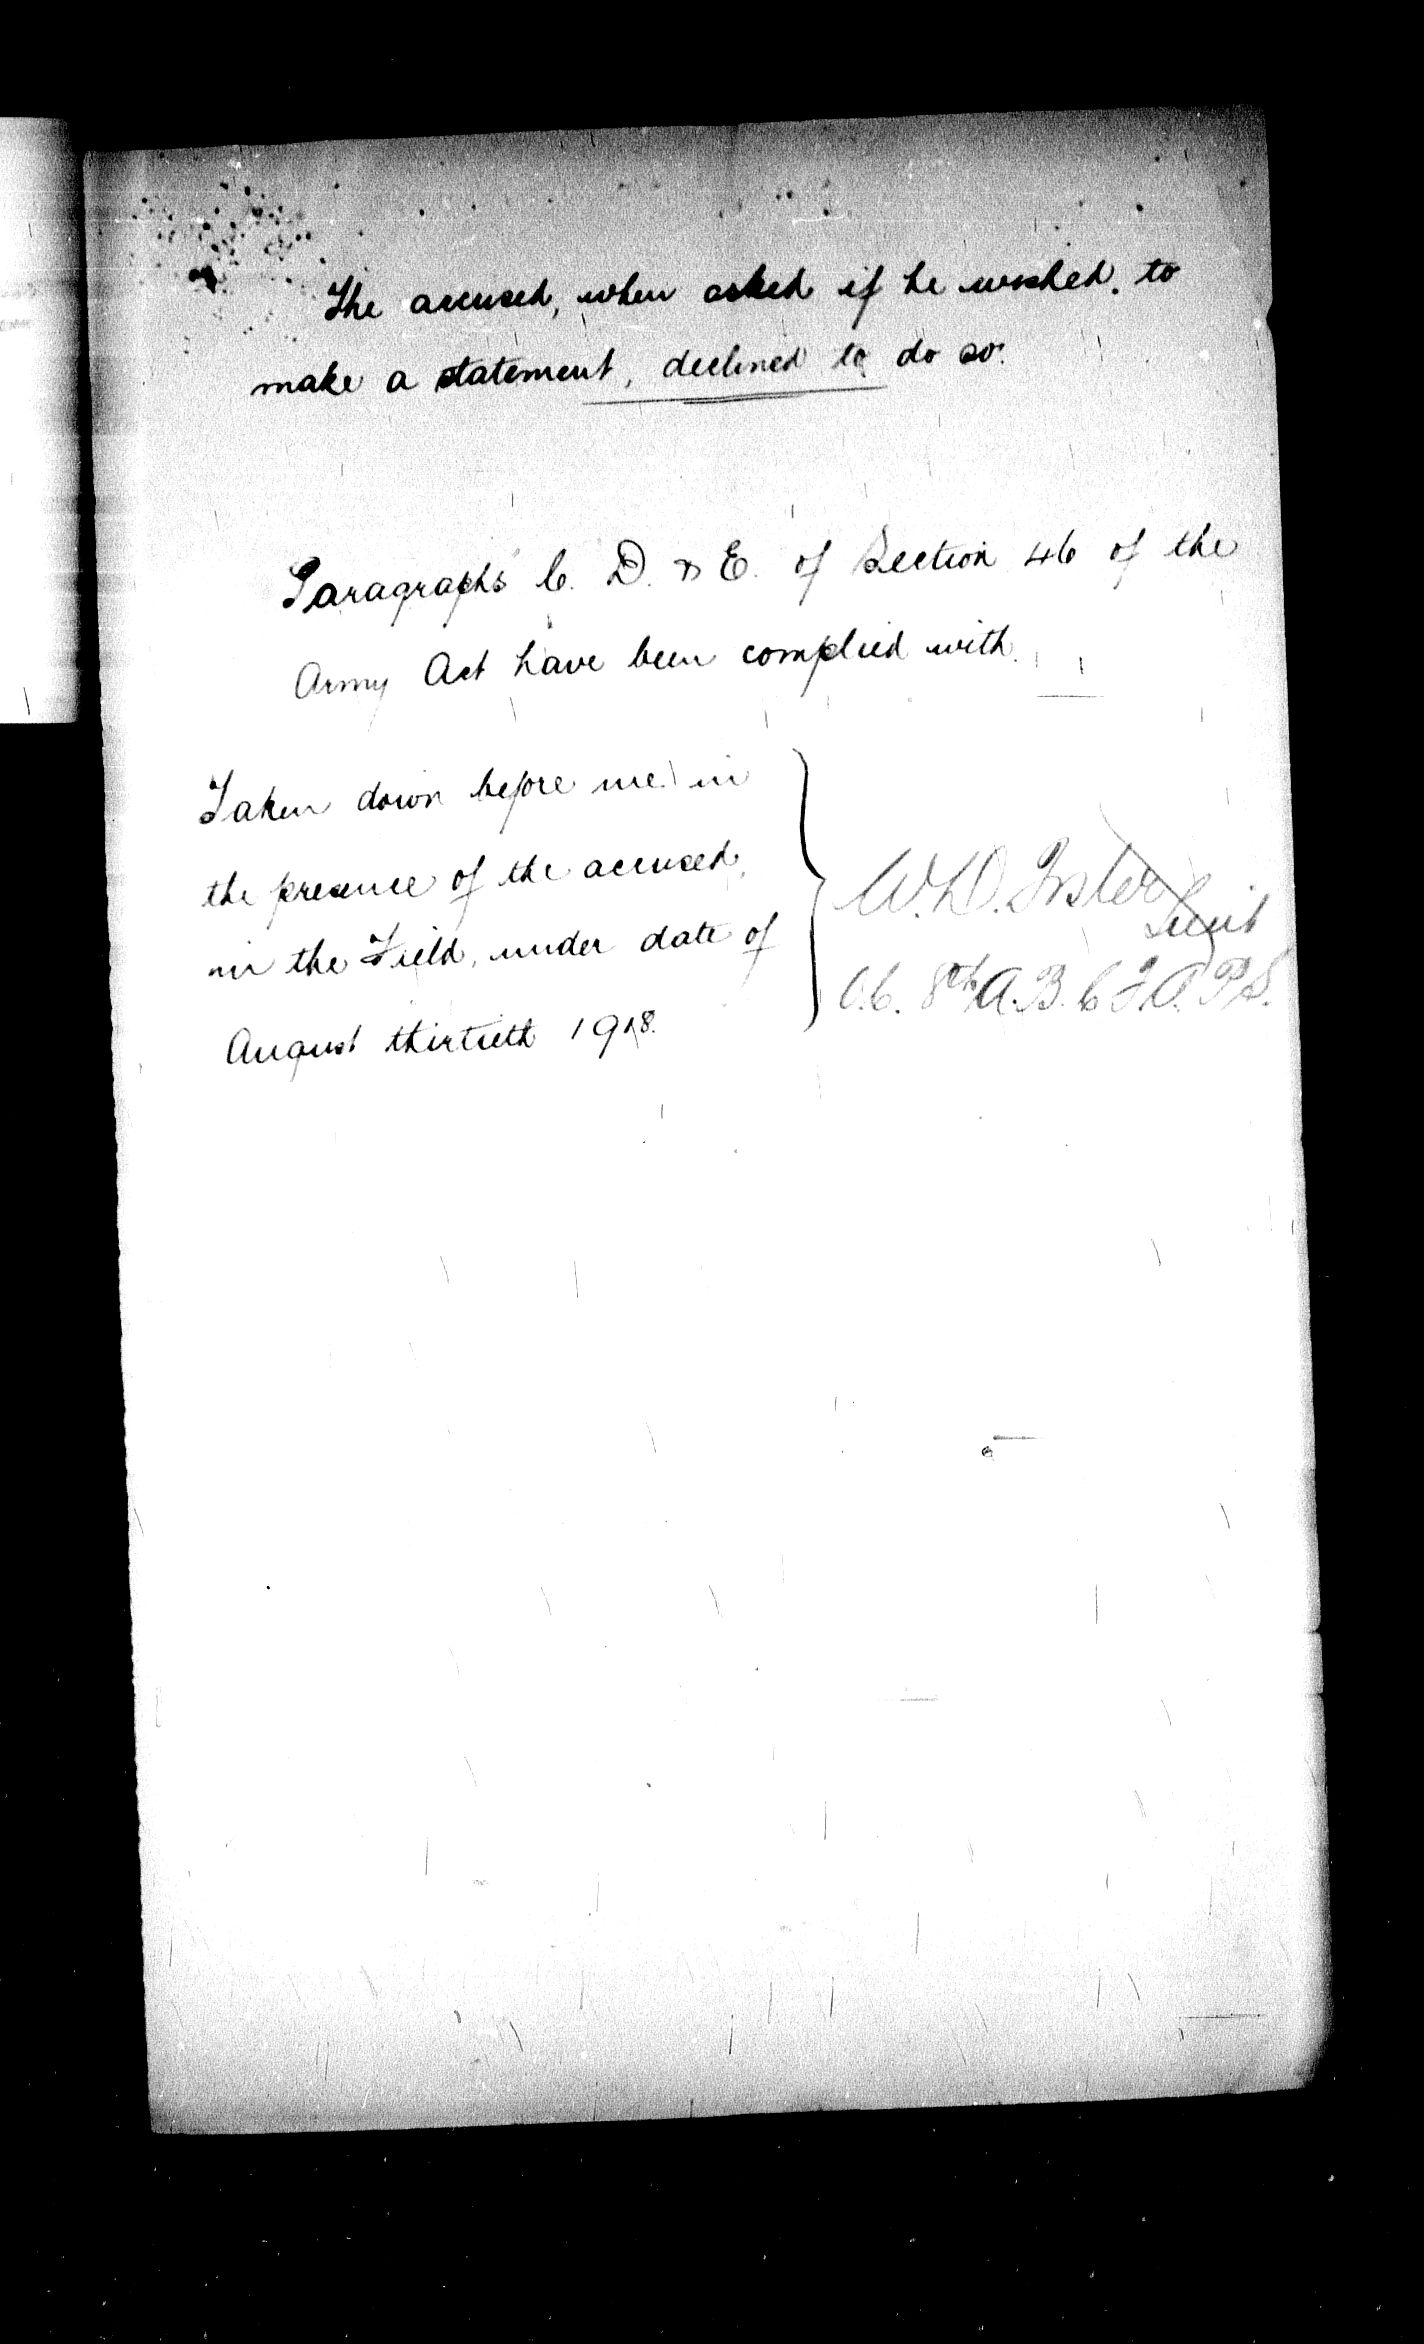 The accused, when asked if he wished, to
make a statement, declined to do so.
Paragraphs C. D. & E. of Section 46 of the
Army Act have been complied with.
Taken down before me in
the presence of the accused,
in the Field, under date of
August thirtieth 1918.
W.D. Foster
Lieut
O.C. 8th A.B.C.F.A.P.S.